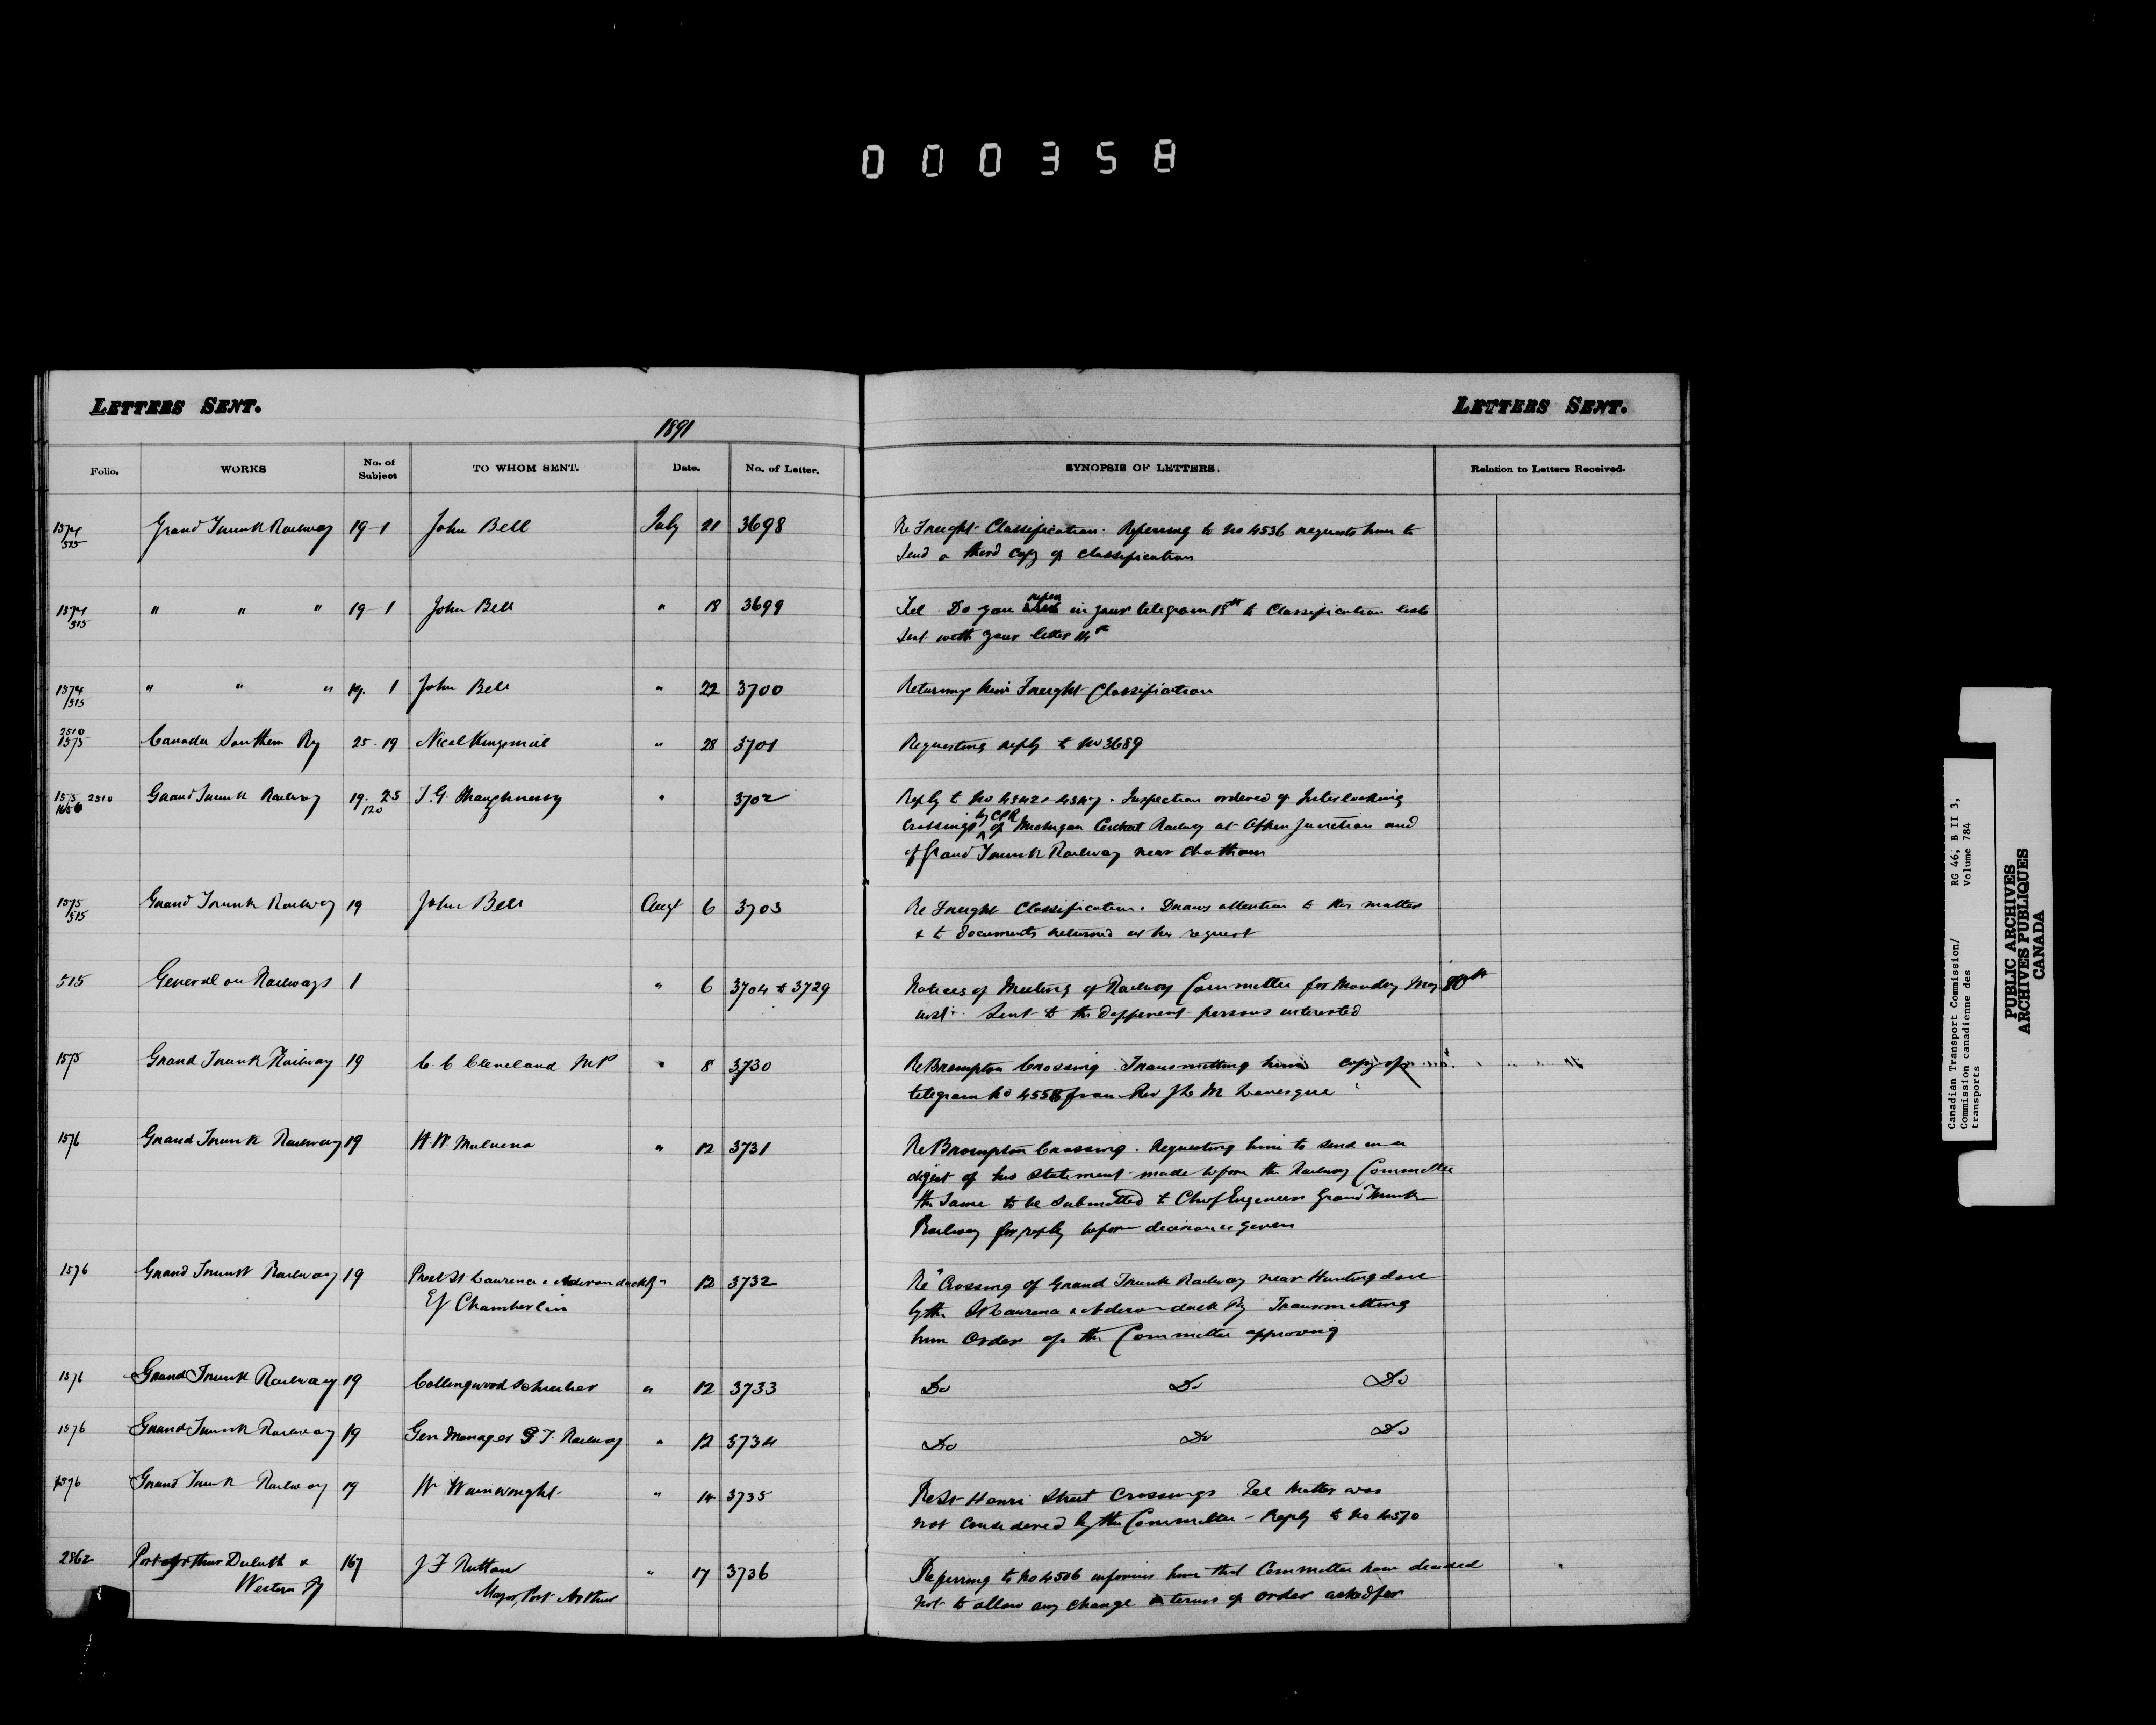 000358
LETTERS SENT.
1891
Folio. WORKS No. of Subject TO WHOM SENT. Date. No. of Letter.
1574/515 Grand Trunk Railway 19-1 John Bell July 21 3698
1574/515 " " " 19-1 John Bell " 18 3699
1574/515 " " " 19. 1 John Bell " 22 3700
2510 1575 Canada Southern Ry 25-19 Nicol Kingsmill " 28 3701
1575 2510 1656 Grand Trunk Railway 19. 25 120 T.G. Shaughnessy " 3702
1575/515 Grand Trunk Railway 19 John Bell Augt 6 3703
515 General on Railways 1 " 6 3704 to 3729
1575 Grand Trunk Railway 19 C. C Cleveland MP " 8 3730
1576 Grand Trunk Railway 19 W. W " 12 3731
1576 Grand Trunk Railway 19 Prest St Lawrence & Adirondack Ry " 12 3732
EJ Chamberlin
1576 Grand Trunk Railway 19 Collingwood Schreiber " 12 3733
1576 Grand Trunk Railway 19 Gen Manager G T. Railway " 12 3734
1576 Grand Trunk Railway 19 W Wainwright " 14 3735
2862 Port Arthur Duluth & 167 J F Ruttan " 17 3736
Western Ry Mayor, Port Arthur
LETTERS SENT.
SYNOPSIS OF LETTERS. Relation to Letters Received.
Re Freight Classification. Referring to No 4536 requests him to
send a third copy of classification
Tel. Do you refer in your telegram 18th to Classification lists
sent with your letter 14th
Returning him Freight Classification
Requesting reply to No 3689
Reply to No 4342 & 4347. Inspection ordered of Interlocking
crossings by CPR of Michigan Central Railway at Junction and
of Grand Trunk Railway near Chatham
Re Freight Classification. Draws attention to this matter
& to documents returned at his request
Notices of Meeting of Railway Committee for Monday
inst. Sent to the different persons interested
Re Brompton Crossing Transmitting him copy of
telegram No 4558 from Rev J L M Levesque
Re Brompton Crossing. Requesting him to send in a
digest of his statement made before the Railway Committee
the same to be submitted to Chief Engineer Grand Trunk
Railway for reply before decision is given
Re Crossing of Grand Trunk Railway near Huntingdon
by the St Lawrence & Adirondack Ry Transmitting
him Order of the Committee approving
Do Do Do
Do Do Do
Re St Henri Street Crossings Tel Matter was
not considered by the Committee - Reply to No 4570
Referring to No 4506 informs him that Committee have decided
not to allow any change in terms of order asked for
Canadian Transport Commission/ RG 46, B II 3,
Commission canadienne des Volume 784
transports
PUBLIC ARCHIVES
ARCHIVES PUBLIQUES
CANADA